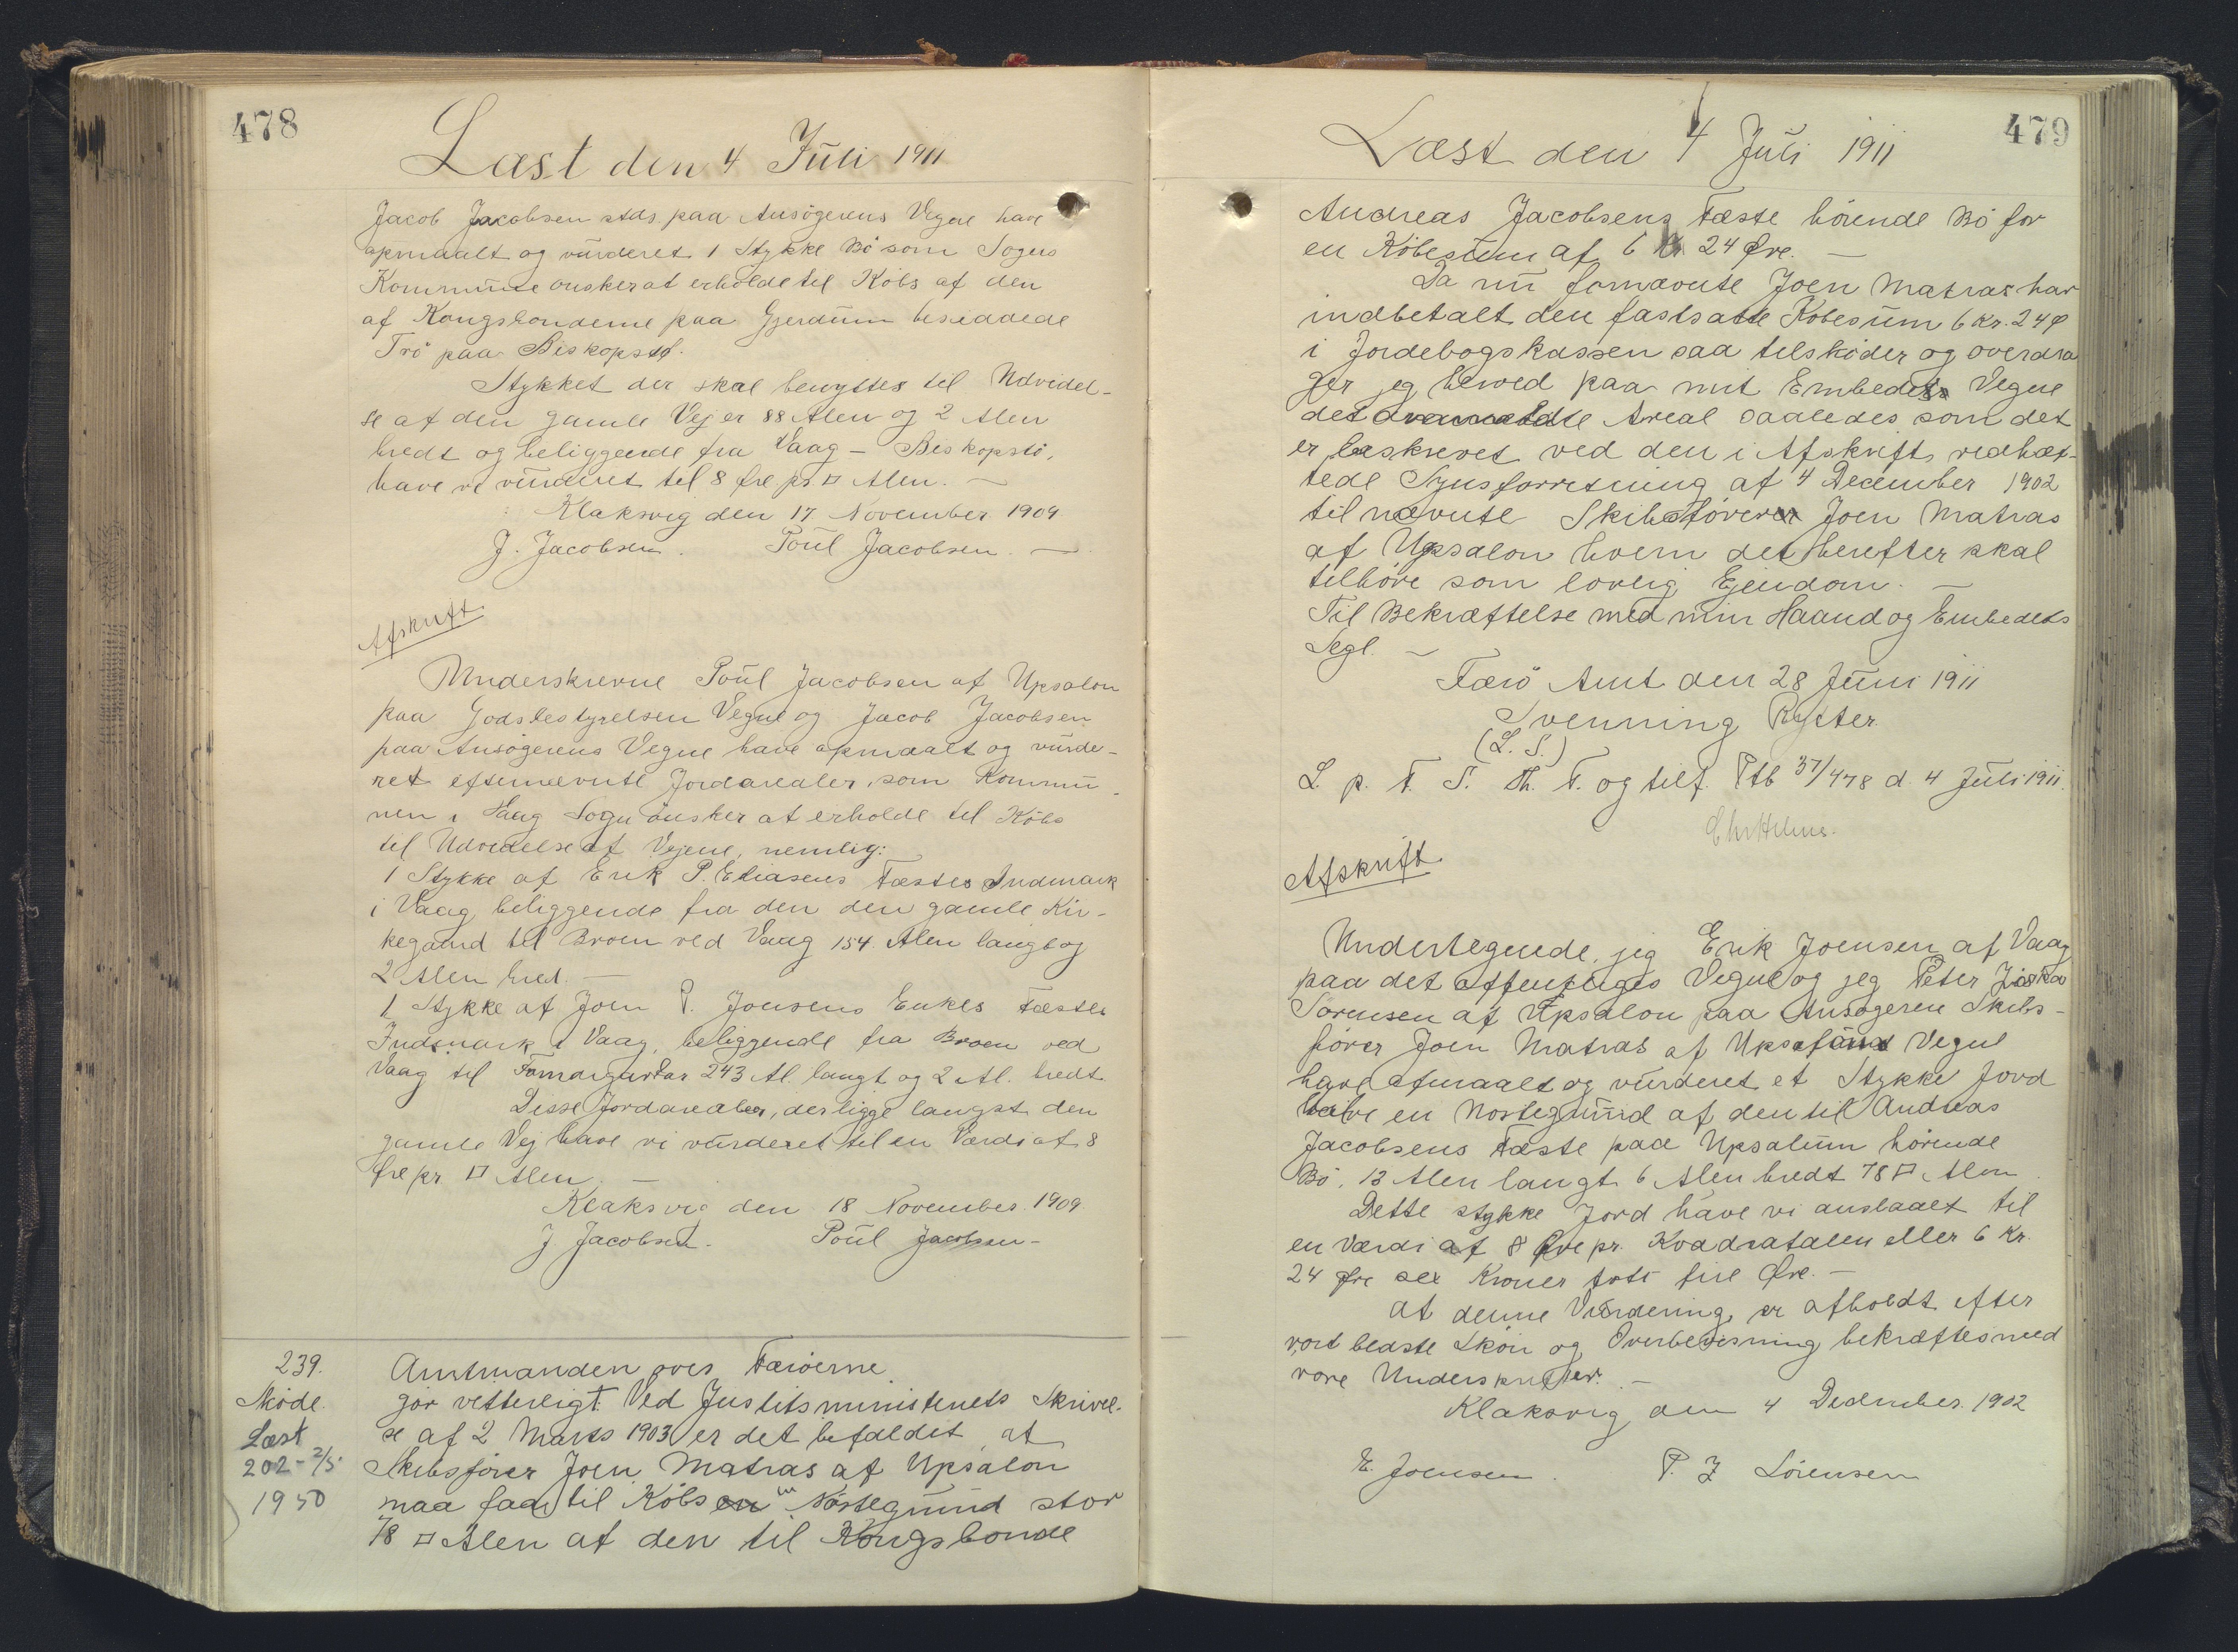 478
Læst den 4 Juli 1911
Jacob Jacobsen stds paa Ansøgerens Vegne have
opmaalt og vurderet 1 Stykke Bø som Sogns
Kommune ønsker at erholde til Købs af den
af Kongsbønderne paa Gjerdum besiddede
Trö paa Biskopstø.
Stykket der skal benyttes til Udvidel-
se af den gamle Vej er 88 Alen og 2 Alen
bredt og beliggende fra Vaag - Biskopstö,
have vi vurderet til 8 Øre pr □ Alen. —
Klaksvig den 17 November 1909
J. Jacobsen. Poul Jacobsen. —
Afskrift
Underskrevne Poul Jacobsen af Upsalon
paa Godsbestyrelsen Vegne og Jacob Jacobsen
paa Ansøgerens Vegne have opmaalt og vurde-
ret efternævnte Jordarealer, som Kommu-
nen i Vaag Sogn ønsker at erholde til Købs
til Udvidelse af Vejene, nemlig:
1 Stykke af Erik P. Eliasens Fæstes Indmark
i Vaag beliggende fra den den gamle Kir-
kegaard til Broen ved Vaag 154 Alen langt og
2 Alen bred. —
1 Stykke af Joen P. Joensens Enkes Fæstes
Indmark i Vaag, beliggende fra Broen ved
Vaag til 243 Al. langt og 2 Al. bredt
Disse Jordarealer, der ligge langst den
gamle Vej have vi vurderet til en Værdi af 8
Øre pr □ Alen. —
Klaksvig den 18 November 1909.
J Jacobsen. Poul Jacobsen -
239.
Skøde.
Læst
202 - 2/5
1950
Amtmanden over Færøerne
gør vetterligt: Ved Justitsministeriets Skrivel-
se af 2 Marts 1903 er det befaldet, at
Skibsfører Joen Matras af Upsalon
maa faa til Købs en Nøstegrund stor
78 □ Alen af den til Kongsbonde
479
Læst den 4 Juli 1911
Andreas Jacobsens Fæste hørende Bø for
en Købesum af 6 Kr 24 Øre. —
Da nu fornævnte Joen Matras har
indbetalt den fastsatte Købesum 6 Kr. 24 Ø
i Jordebogskassen saa tilskøder og overdra
ger jeg herved paa mit Embedes Vegne
det Areal saaledes som det
er beskrevet ved den i Afskrift vedhæf-
tede Synsforretning af 4 December 1902
til nævnte Skibsfører Joen Matras
af Upsalon hvem det herefter skal
tilhøre som lovlig Ejendom. —
Til Bekræftelse med min Haand og Embedets
Segl. —
Færö Amt den 28 Juni 1911
Svenning Rytter
(L. S.)
L. p. F. S. Th. F. og tilf. Ptb 37/478 d. 4 Juli 1911.
Afskrift
Undertegnede, jeg Erik Joensen af Vaag
paa det offentliges Vegne og jeg Peter
Sörensen af Upsalon paa Ansøgeren Skibs-
fører Joen Matras af Vegne
have afmaalt og vurderet et Stykke Jord
en Nøstegrund af den til Andreas
Jacobsens Fæste paa Upsalum hørende
Bø, 13 Alen langt 6 Alen bredt 78 □ Alen
Dette stykke Jord have vi anslaaet til
en Værdi af 8 Øre pr. Kvadratalen eller 6 Kr.
24 Øre sex Kroner fire Øre. —
At denne Vurdering er afholdt efter
vort bedste Skøn og Overbevisning bekræftes med
vore Underskrifter. —
Klaksvig den 4 December 1902
E. Joensen. P. J Sörensen